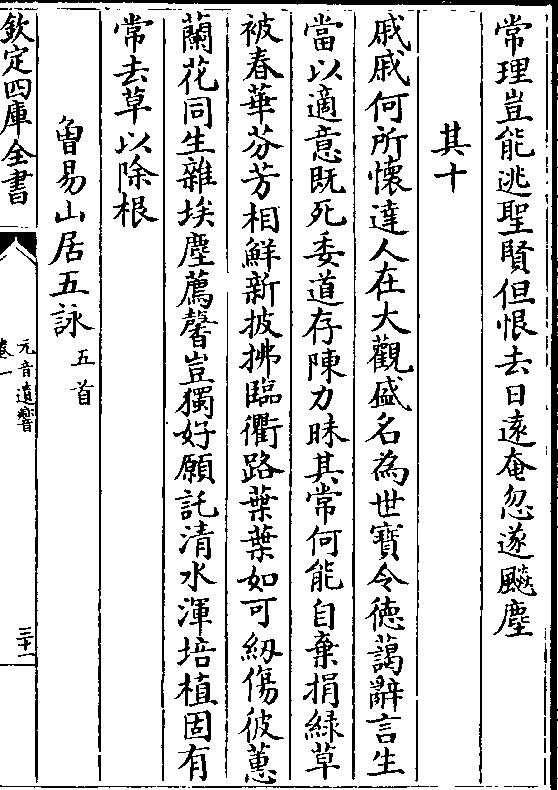 常理豈能逃聖賢但恨去日遠奄忽遂飈塵
其十
戚戚何所懷達人在大觀盛名為世寶令徳藹辭言生
當以適意既死委道存陳力昧其常何能自棄捐緑草
被春華芬芳相鮮新披拂臨衢路葉葉如可紉傷彼蕙
蘭花同生雜埃塵薦馨豈獨好願託清水渾培植固有
常去草以除根
魯易山居五詠五首
欽定四庫全書
元音遺響
卷一
三十一